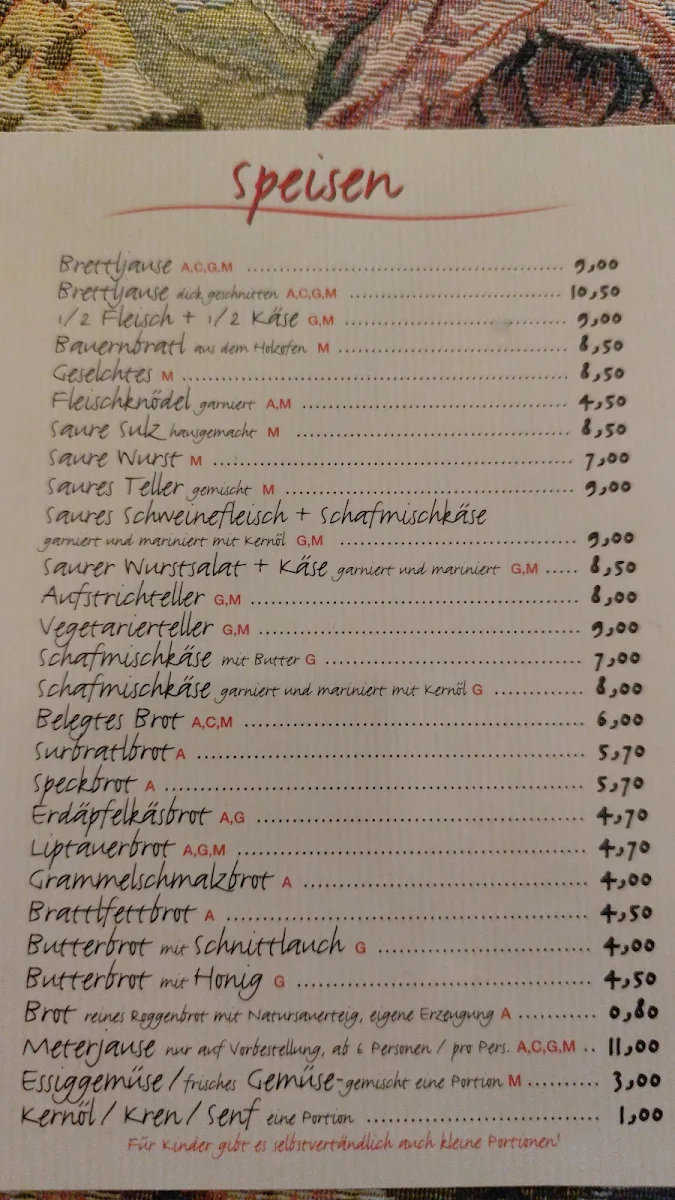 Speisen
Brettljause A,C,G,M ........ 9,00
Brettljause dick geschnitten A,C,G,M ........ 10,50
1/2 Fleisch + 1/2 Käse G,M ........ 9,00
Bauernbratl aus dem Holzofen M ........ 8,50
Geselchtes M ........ 8,50
Fleischknödel garniert A,M ........ 4,50
Saure Sulz hausgemacht M ........ 8,50
Saure Wurst M ........ 7,00
Saures Teller gemischt M ........ 9,00
Saures Schweinefleisch + Schafmischkäse
garniert und mariniert mit Kernöl G,M ........ 9,00
Saurer Wurstsalat + Käse garniert und mariniert G,M ..... 8,50
Aufstrichteller G,M ........ 8,00
Vegetarierteller G,M ........ 9,00
Schafmischkäse mit Butter G ........ 7,00
Schafmischkäse garniert und mariniert mit Kernöl G ........ 8,00
Belegtes Brot A,C,M ........ 6,00
Surbratlbrot A ........ 5,70
Speckbrot A ........ 5,70
Erdäpfelkäsbrot A,G ........ 4,70
Liptauerbrot A,G,M ........ 4,70
Grammelschmalzbrot A ........ 4,00
Brattlfettbrot A ........ 4,50
Butterbrot mit Schnittlauch G ........ 4,00
Butterbrot mit Honig G ........ 4,50
Brot reines Roggenbrot mit Natursauerteig, eigene Erzeugung A ........ 0,80
Meterjause nur auf Vorbestellung, ab 6 Personen / pro Pers. A,C,G,M .. 11,00
Essiggemüse / frisches Gemüse-gemischt eine Portion M ........ 3,00
Kernöl / Kren / Senf eine Portion ........ 1,00
Für Kinder gibt es selbstvertändlich auch kleine Portionen!